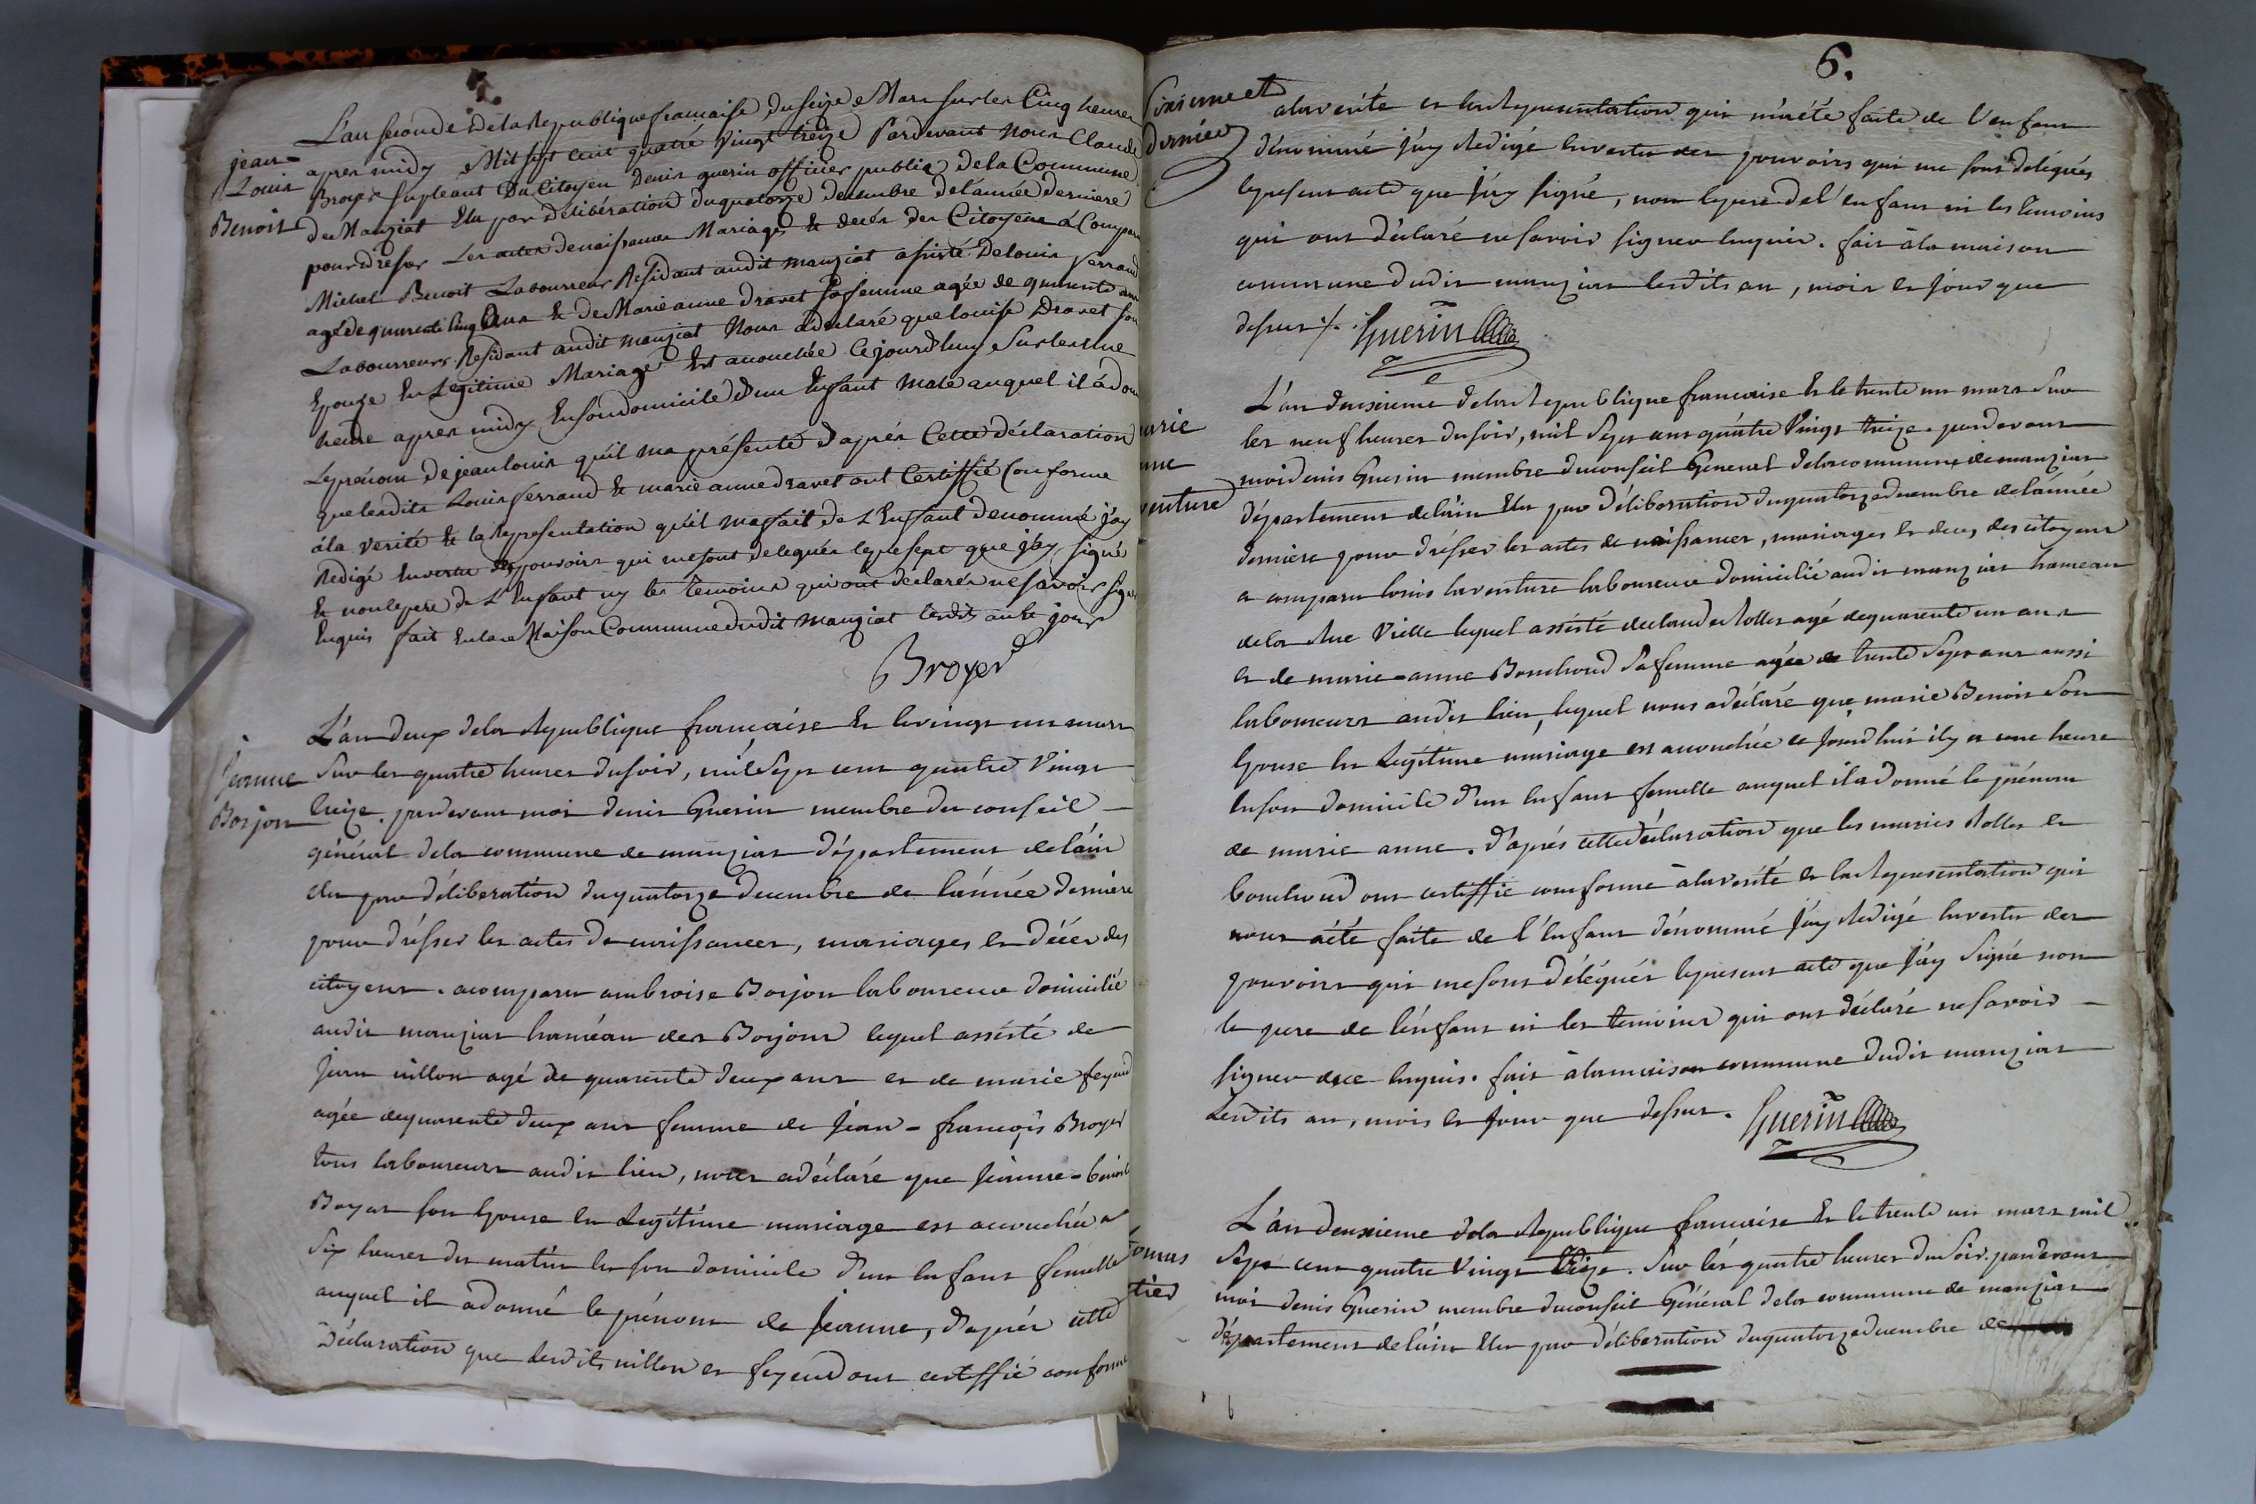 jean-
Louis
Benoit
L'an seconde de la Republique francaise du seize Mars sur les Cinq heures
apres midy Mil sept cent quatre Vingt treize Pardevant nous Claude
Broyer supleant Du Citoyen Denis guerin officier public de la Commune
de Manziat Elu par délibération du quatorze decembre de l'année derniere
pour dresser Les actes de naissances Mariages & decès des Citoyens à Comparu
Michel Benoit Laboureur Residant audit manziat assisté De louis ferrand
agé de quarente Cinq ans & de Marie anne dravet sa femme agée de quarente ans
Laboureurs Residant audit manziat Nous a déclaré que louise Dravet son
Epouze En Legitime Mariage Est acouchée Cejourdhuy Sur les une
heure apres midy En son domicile d'un Enfant Male auquel il a donné
Le prénom de jean louis qu'il ma présenté d'après Cette déclaration
que lesdits Louis ferrand & marie anne dravet ont Certiffié Conforme
à la verité & la Représentation qu'il ma fait de L'Enfant denommé j'ay
Redigé En vertu des pouvoirs qui me sont delegués le present que j'ay signé
& non le pere de L'Enfant ny les temoins qui ont declarés ne savoir signer
Enquis fait En la Maison Commune dudit manziat lesdits an & jour
Broyer
Jeanne
Borjon
L'an deux de la Republique francaise & le vingt un mars
Sur les quatre heures du soir, mil Sept cent quatre Vingt
treize. pardevant moi denis Guerin membre du conseil
général de la commune de manziat département de l'ain
elu par déliberation du quatorze decembre de l'année derniere
pour drésser les actes de naissances, mariages et décès des
citoyens. a comparu ambroise Borjon laboureur domicilié
audit manziat haméau des Borjons lequel assisté de
Jean villon agé de quarente deux ans et de marie feyeud
agée de quarente deux ans femme de Jean-françois Broyer
tous laboureurs audit lieu, nous a déclaré que Jeanne-benoite
Boyat son Epouse En Legitime mariage est acouchée a
Six heures du matin En son domicile d'un Enfant femelle
auquel il a donné le prénom de Jeanne, d'après cette
Déclaration que lesdits villon et feyeud ont certiffié conforme
6.
Sixieme et
dernier
a la verité et la Representation qui m'a été faite de l'enfant
dénommé j'ay Redigé En vertu des pouvoirs qui me sont délégués
le present acte que j'ay signé, non le pere de l'enfant ni les temoins
qui ont déclaré ne savoir signer Enquis. fait à la maison
commune dudit manziat lesdits an, mois et jour que
dessus. Guerin
arie
nne
venture
L'an deuxieme de la Republique francaise & le trente un mars Sur
les neuf heures du soir, mil Sept cent quatre Vingt treize. pardevant
moi denis Guerin membre du conseil General de la commune de manziat
département de l'ain Elu par déliberation du quatorze decembre de l'année
derniere pour drésser les actes de naissances, mariages et deces des citoyens
a comparu louis laventure laboureur domicilié audit manziat hameau
de la Rue Vielle lequel assisté de claude Rollet agé de quarente un ans
et de marie-anne Bouchoud Sa femme agée de trente Sept ans aussi
laboureurs audit lieu, lequel nous a déclaré que marie Benoit Son
Epouse En Legitime mariage est acouchée ce jourd'hui il y a une heure
En son domicile d'un Enfant femelle auquel il a donné le prénom
de marie anne. d'après cette déclaration que les mariés Rollet et
bouchoud ont certiffié conforme à la verité et la Representation qui
nous a été faite de l'Enfant dénommé j'ay Redigé En vertu des
pouvoirs qui me sont délégués le present acte que j'ay Signé non
le pere de l'énfant ni les temoins qui ont déclaré ne savoir
signer de ce Enquis. fait à la maison commune dudit manziat
Lesdits an, mois et jour que dessus. Guerin
omas
tier
L'an deuxieme de la Republique francaise & le trente un mars mil
Sept cent quatre Vingt treize. Sur lés quatre heures du Soir. pardevant
moi denis Guerin membre du conseil Général de la commune de manziat
département de l'ain Elu par déliberation du quatorze decembre de
6